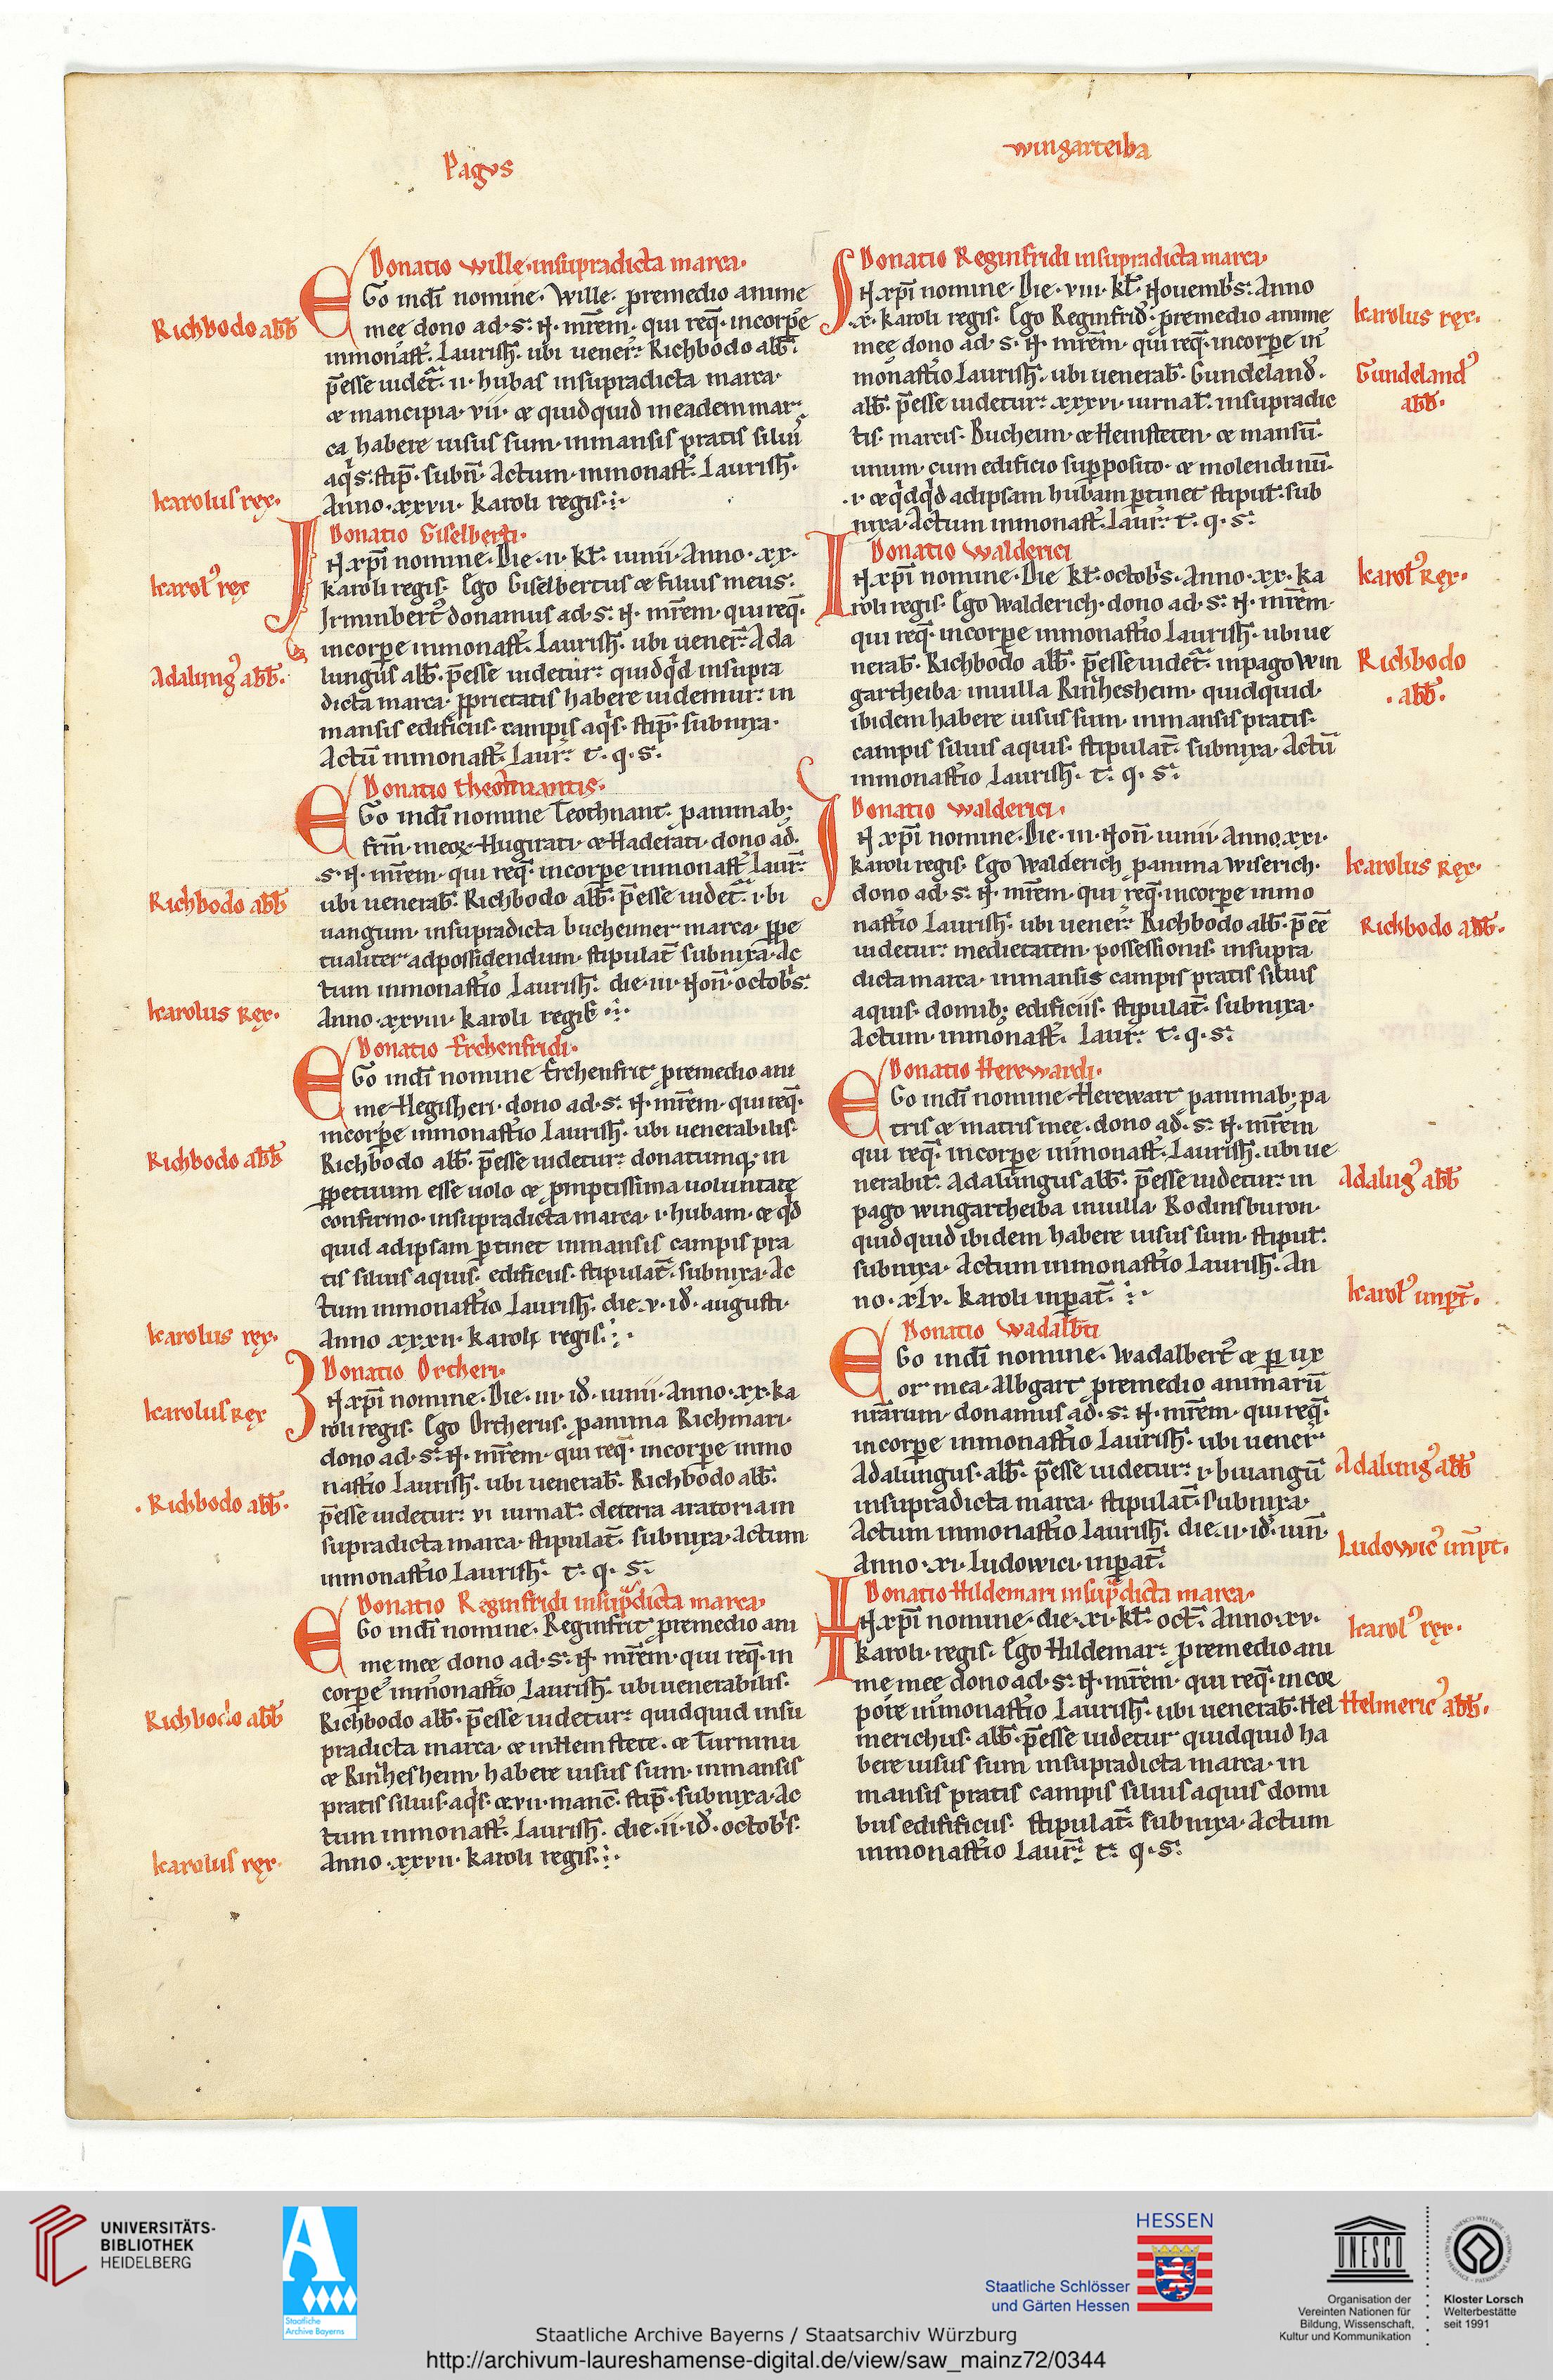 Pagus
wingarteiba
Donatio Wille. in supradicta marca.
EGo in dī nomine. Wille. p remedio anime
mee dono ad. S. N. mr̄em. qui req̄. in corpe
in monast̄. Laurish̄. ubi uener̄. Richbodo abb̄.
p̄esse uidet̄. ii. hubas in supradicta marca.
& mancipia. vii. & quidquid in eadem mar
ca habere uisus sum. in mansis pratis siluis
aq̄s. stip̄. subn̄. Actum. in monast̄. Laurish̄.
Anno. xxvii. Karoli regis.
Richbodo abb̄
karolus rex.
Donatio Giselberti.
IN xp̄i nomine. Die. ii. kł. iunii. Anno. xx.
karoli regis. Ego Giselbertus & filius meus.
Irminbert' donamus ad. S. N. mr̄em. qui req̄.
in corpe in monast̄. Laurish̄. ubi uener̄. Ada
lungus abb̄. p̄esse uidetur. quidq̄d in supra
dicta marca. pprietatis habere uidemur. in
mansis edificiis. campis aq̄s. stip̄. subnixa.
Actū in monast̄. Laur̄. t. q. s.
karoł rex
Adalung' abb̄.
Donatio theothnantis.
EGo in dī nomine Teothnant. p animab;
frm̄. meoꝝ Hugirati. & Haderati. dono ad.
S. N. mr̄em. qui req̄. in corpe in monast̄ Laur̄.
ubi uenerab̄. Richbodo abb̄. p̄esse uidet̄. i. bi
uangum. in supradicta bucheimer marca. ppe
tualiter ad possidendum. stipulat̄ subnixa. Ac
tum in monast̄io Laurish̄. die. iii. Non̄. octobs̄.
Anno. xxviii. karoli regis.
Richbodo abb̄
karolus rex.
Donatio Erchenfridi.
EGo in dī nomine Erchenfrit p remedio ani
me Hegisheri. dono ad. S. N. mr̄em. qui req̄.
in corpe in monast̄io Laurish̄. ubi uenerabilis.
Richbodo abb̄. p̄esse uidetur. donatumq; in
ppetuum esse uolo & pmptissima uoluntate
confirmo. in supradicta marca. i. hubam. & qd
quid ad ipsam ptinet in mansis campis pra
tis siluis aquis. edificiis. stipulat̄. subnixa. Ac
tum in monast̄io Laurish̄. die. v. id. augusti.
Anno xxxii. karoli regis.
Richbodo abb̄
karolus rex.
Donatio Ortheri.
IN xp̄i nomine. Die. iii. id. iunii. Anno. xx. ka
roli regis. Ego Ortherus. p anima Richmari.
dono ad. S. N. mr̄em. qui req̄. in corpe in mo
nast̄io Laurish̄. ubi uenerab̄. Richbodo abb̄.
p̄esse uidetur. vi iurnał. de terra aratoria in
supradicta marca. stipulat̄. subnixa. Actum
in monast̄io Laurish̄. t. q. s.
karolus rex
Richbodo abb̄.
Donatio Reginfridi in sup̄dicta marca.
EGo in dī nomine. Reginfrit p remedio ani
me mee dono ad. S. N. mr̄em. qui req̄. in
corpe in monast̄io Laurish̄. ubi uenerabilis.
Richbodo abb̄. p̄esse uidetur. quidquid in su
pradicta marca. & in Heimstete. & Turninu
& Rinhesheim habere uisus sum. in mansis
pratis siluis. aq̄s. & vii. manc̄. stip̄. subnixa. Ac
tum in monast̄. Laurish̄. die. ii. id. octobs̄.
Anno. xxvii. karoli regis.
Richbodo abb̄
karolus rex.
Donatio Reginfridi in supradicta marca.
IN xp̄i nomine. Die. viii. kł. Nouembs̄. Anno
.x. karoli regis. Ego Reginfrid'. p remedio anime
mee dono ad. S. N. mr̄em. qui req̄. in corpe in
monast̄io Laurish̄. ubi uenerab̄. Gundeland'.
abb̄. p̄esse uidetur. xxxvi. iurnał. in supradic
tis. marcis. Bucheim. & Heinsteten. & mansū.
unum. cum edificio supposito. & molendinū.
.i. & q̄dq̄d ad ipsam hubam ptinet stipuł. sub
nixa. Actum in monast̄. Laur̄. t. q. s.
karolus rex.
Gundeland'
abb̄.
Donatio Walderici
IN xp̄i nomine. Die kł. octobs̄. Anno. xx. ka
roli regis. Ego Walderich. dono ad. S. N. mr̄em.
qui req̄. in corpe in monast̄io Laurish̄. ubi ue
nerab̄. Richbodo abb̄. p̄esse uidet̄. in pago Win
gartheiba in uilla Rinhesheim. quidquid.
ibidem habere uisus sum. in mansis pratis.
campis siluis aquis. stipulat̄. subnixa. Actū
in monast̄io Laurish̄. t. q. s.
karoł rex.
Richbodo
.abb̄.
Donatio Walderici.
IN xp̄i nomine. Die. iii. Non̄. iunii. Anno. xxi.
karoli regis. Ego Walderich p anima Wiserich.
dono ad. S. N. mr̄em. qui req̄. in corpe in mo
nast̄io Laurish̄. ubi uener̄. Richbodo abb̄. p̄ ēē
uidetur. medietatem. possessionis. in supra
dicta marca. in mansis campis pratis siluis
aquis. domib; edificiis. stipulat̄. subnixa.
Actum. in monast̄. Laur̄. t. q. s.
karolus Rex.
Richbodo abb̄.
Donatio Herewardi.
EGo in dī nomine Herewart p animab; pa
tris & matris mee. dono ad. S. N. mr̄em
qui req̄. in corpe in monast̄. Laurish̄. ubi ue
nerabił. Adalungus abb̄. p̄esse uidetur. in
pago wingartheiba in uilla Rodinsburon.
quidquid ibidem habere uisus sum. stipuł.
subnixa. Actum in monast̄io Laurish̄. An
no. xlv. karoli inpat̄.
Adalung' abb̄
karoł impt̄.
Donatio Wadalbti
EGo in dī nomine. Wadalbert' & p ux
or mea. Albgart p remedio animarū
nr̄arum. donamus ad. S. N. mr̄em. qui req̄.
in corpe in monast̄io Laurish̄. ubi uener̄
Adalungus. abb̄. p̄esse uidetur. i. biuangū
in supradicta marca. stipulat̄. subnixa.
Actum in monast̄io Laurish̄. die. ii. id. iun̄.
Anno. xi. Ludowici. inpat̄.
Adalung' abb̄
Ludowic' impt.
Donatio Hildemari in sup̄dicta marca.
IN xp̄i nomine. die. xi. kł. oct̄. Anno. xv.
karoli. regis. Ego Hildemar. p remedio ani
me mee dono ad. S. N. mr̄em. qui req̄. in cor
pore in monast̄io Laurish̄. ubi uenerab̄. Hel
merichus. abb̄. p̄esse uidetur quidquid ha
bere uisus sum in supradicta marca. in
mansis pratis campis siluis aquis domi
bus edifificiis. stipulat̄. subnixa. Actum
in monast̄io Laur̄. t. q. s.
karol' rex.
Helmeric' abb̄.
UNIVERSITÄTS-
BIBLIOTHEK
HEIDELBERG
Staatliche
Archive Bayerns
HESSEN
Staatliche Schlösser
und Gärten Hessen
UNESCO
Organisation der
Vereinten Nationen für
Bildung, Wissenschaft,
Kultur und Kommunikation
Kloster Lorsch
Welterbestätte
seit 1991
Staatliche Archive Bayerns / Staatsarchiv Würzburg
http://archivum-laureshamense-digital.de/view/saw_mainz72/0344